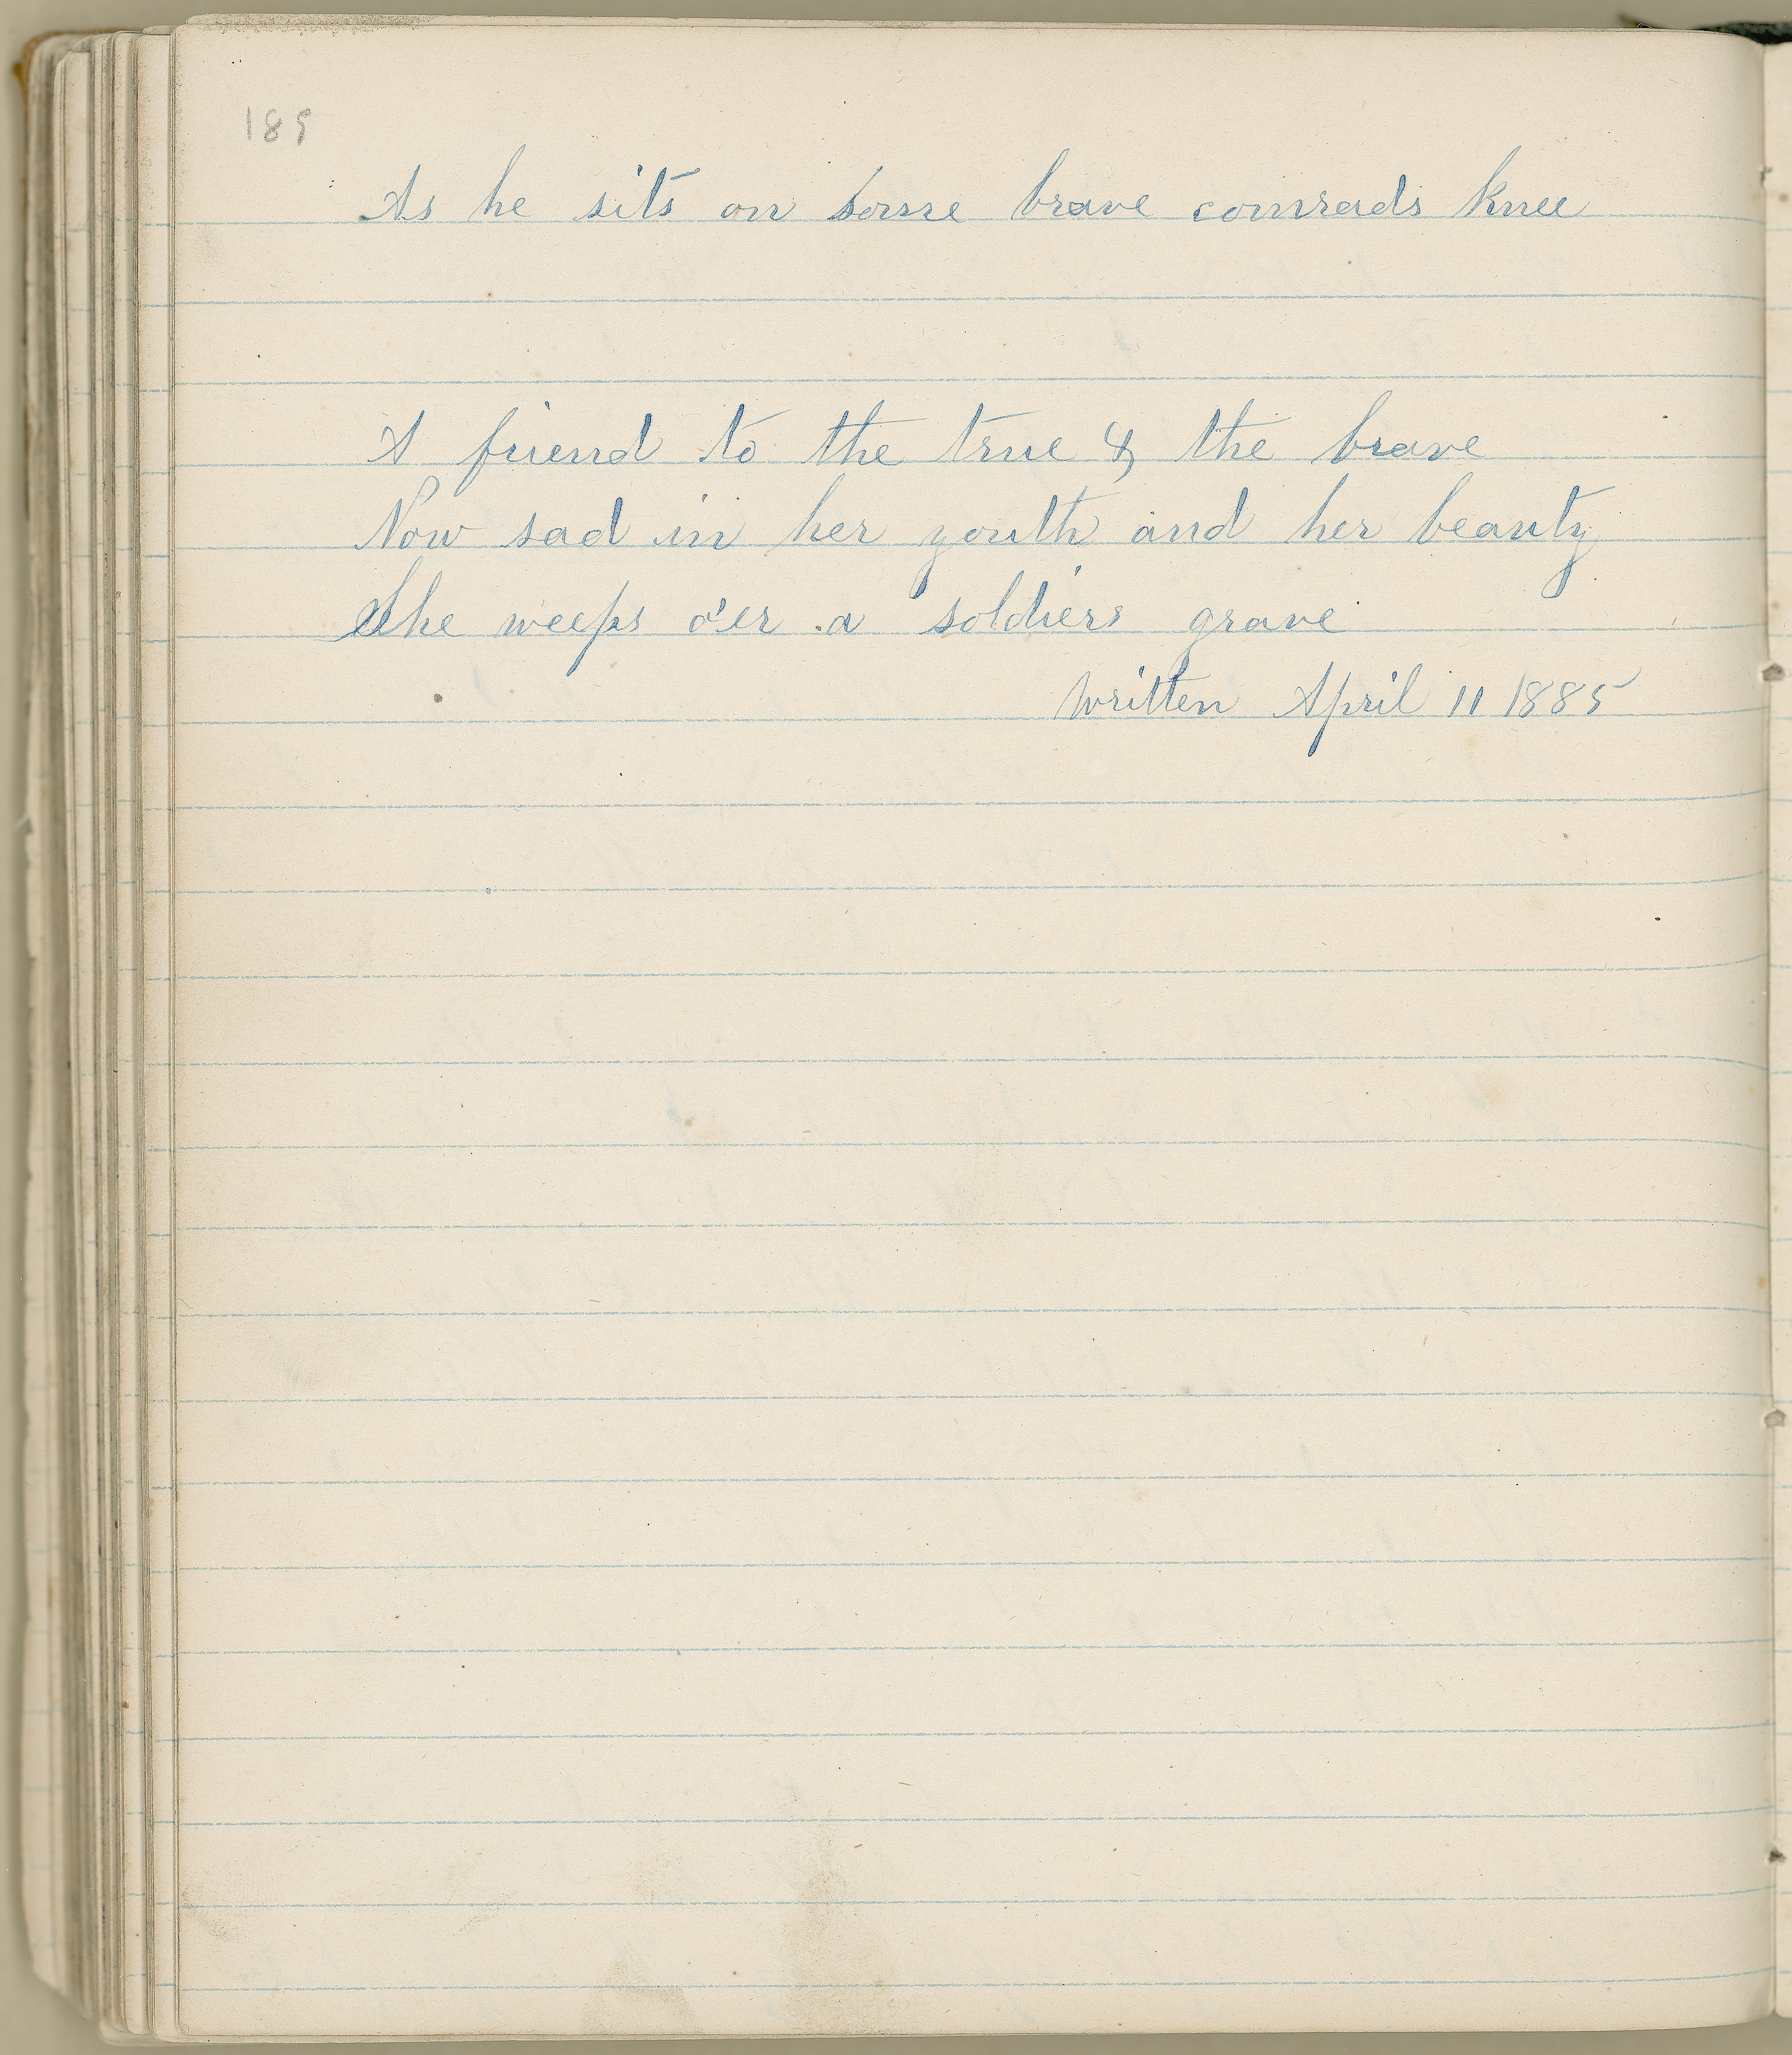 189
As he sits on some brave comrads knee
A friend to the true & the brave
Now sad in her youth and her beauty
She weeps o'er a soldiers grave
written April 11 1885